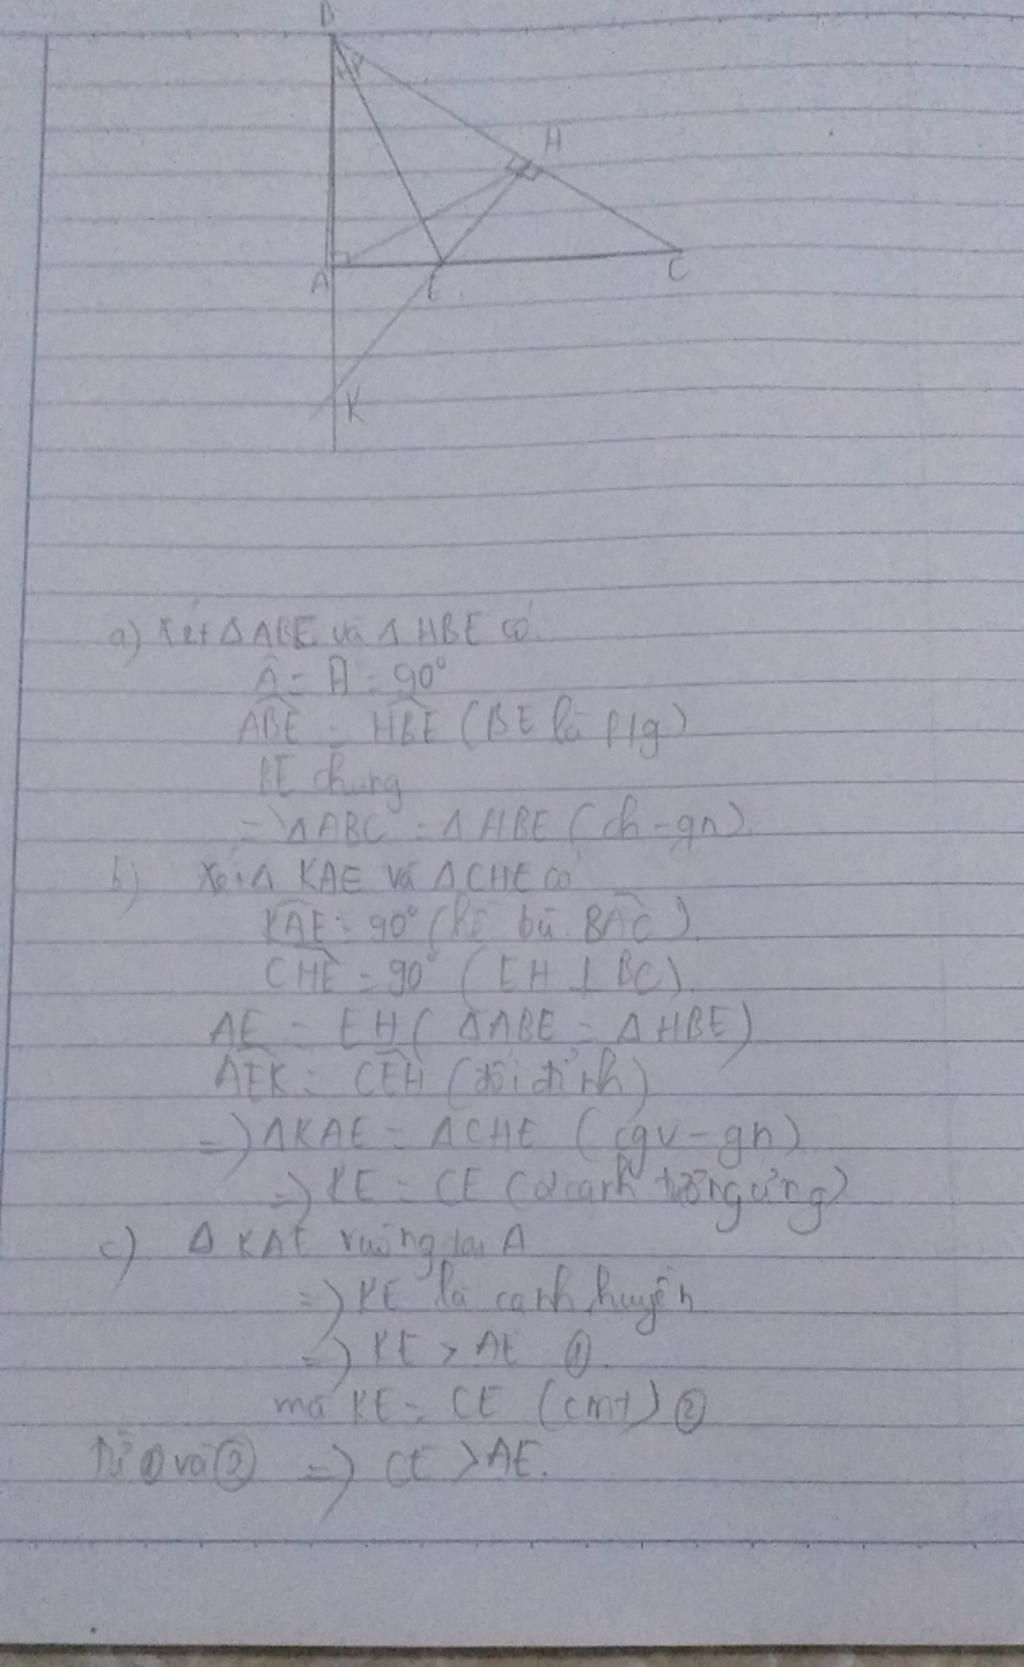 B
H
A
E
C
K
a) Xét Δ ABE và Δ HBE có
Â = Ĥ = 90°
ABE = HBE (BE là p/g)
BE chung
=> Δ ABC = Δ HBE (ch - gn)
b) Xét Δ KAE và Δ CHE có
KAE = 90° (kề bù BAC)
CHE = 90° (EH ⊥ BC)
AE = EH (ΔABE = ΔHBE)
AEK = CEH (đối đỉnh)
=> ΔKAE = ΔCHE (cgv - gn)
=> KE = CE (2 cạnh tương ứng)
c) Δ KAE vuông tại A
=> KE là cạnh huyền
=> KE > AE ①
mà KE = CE (cmt) ②
Từ ① và ② => CE > AE.